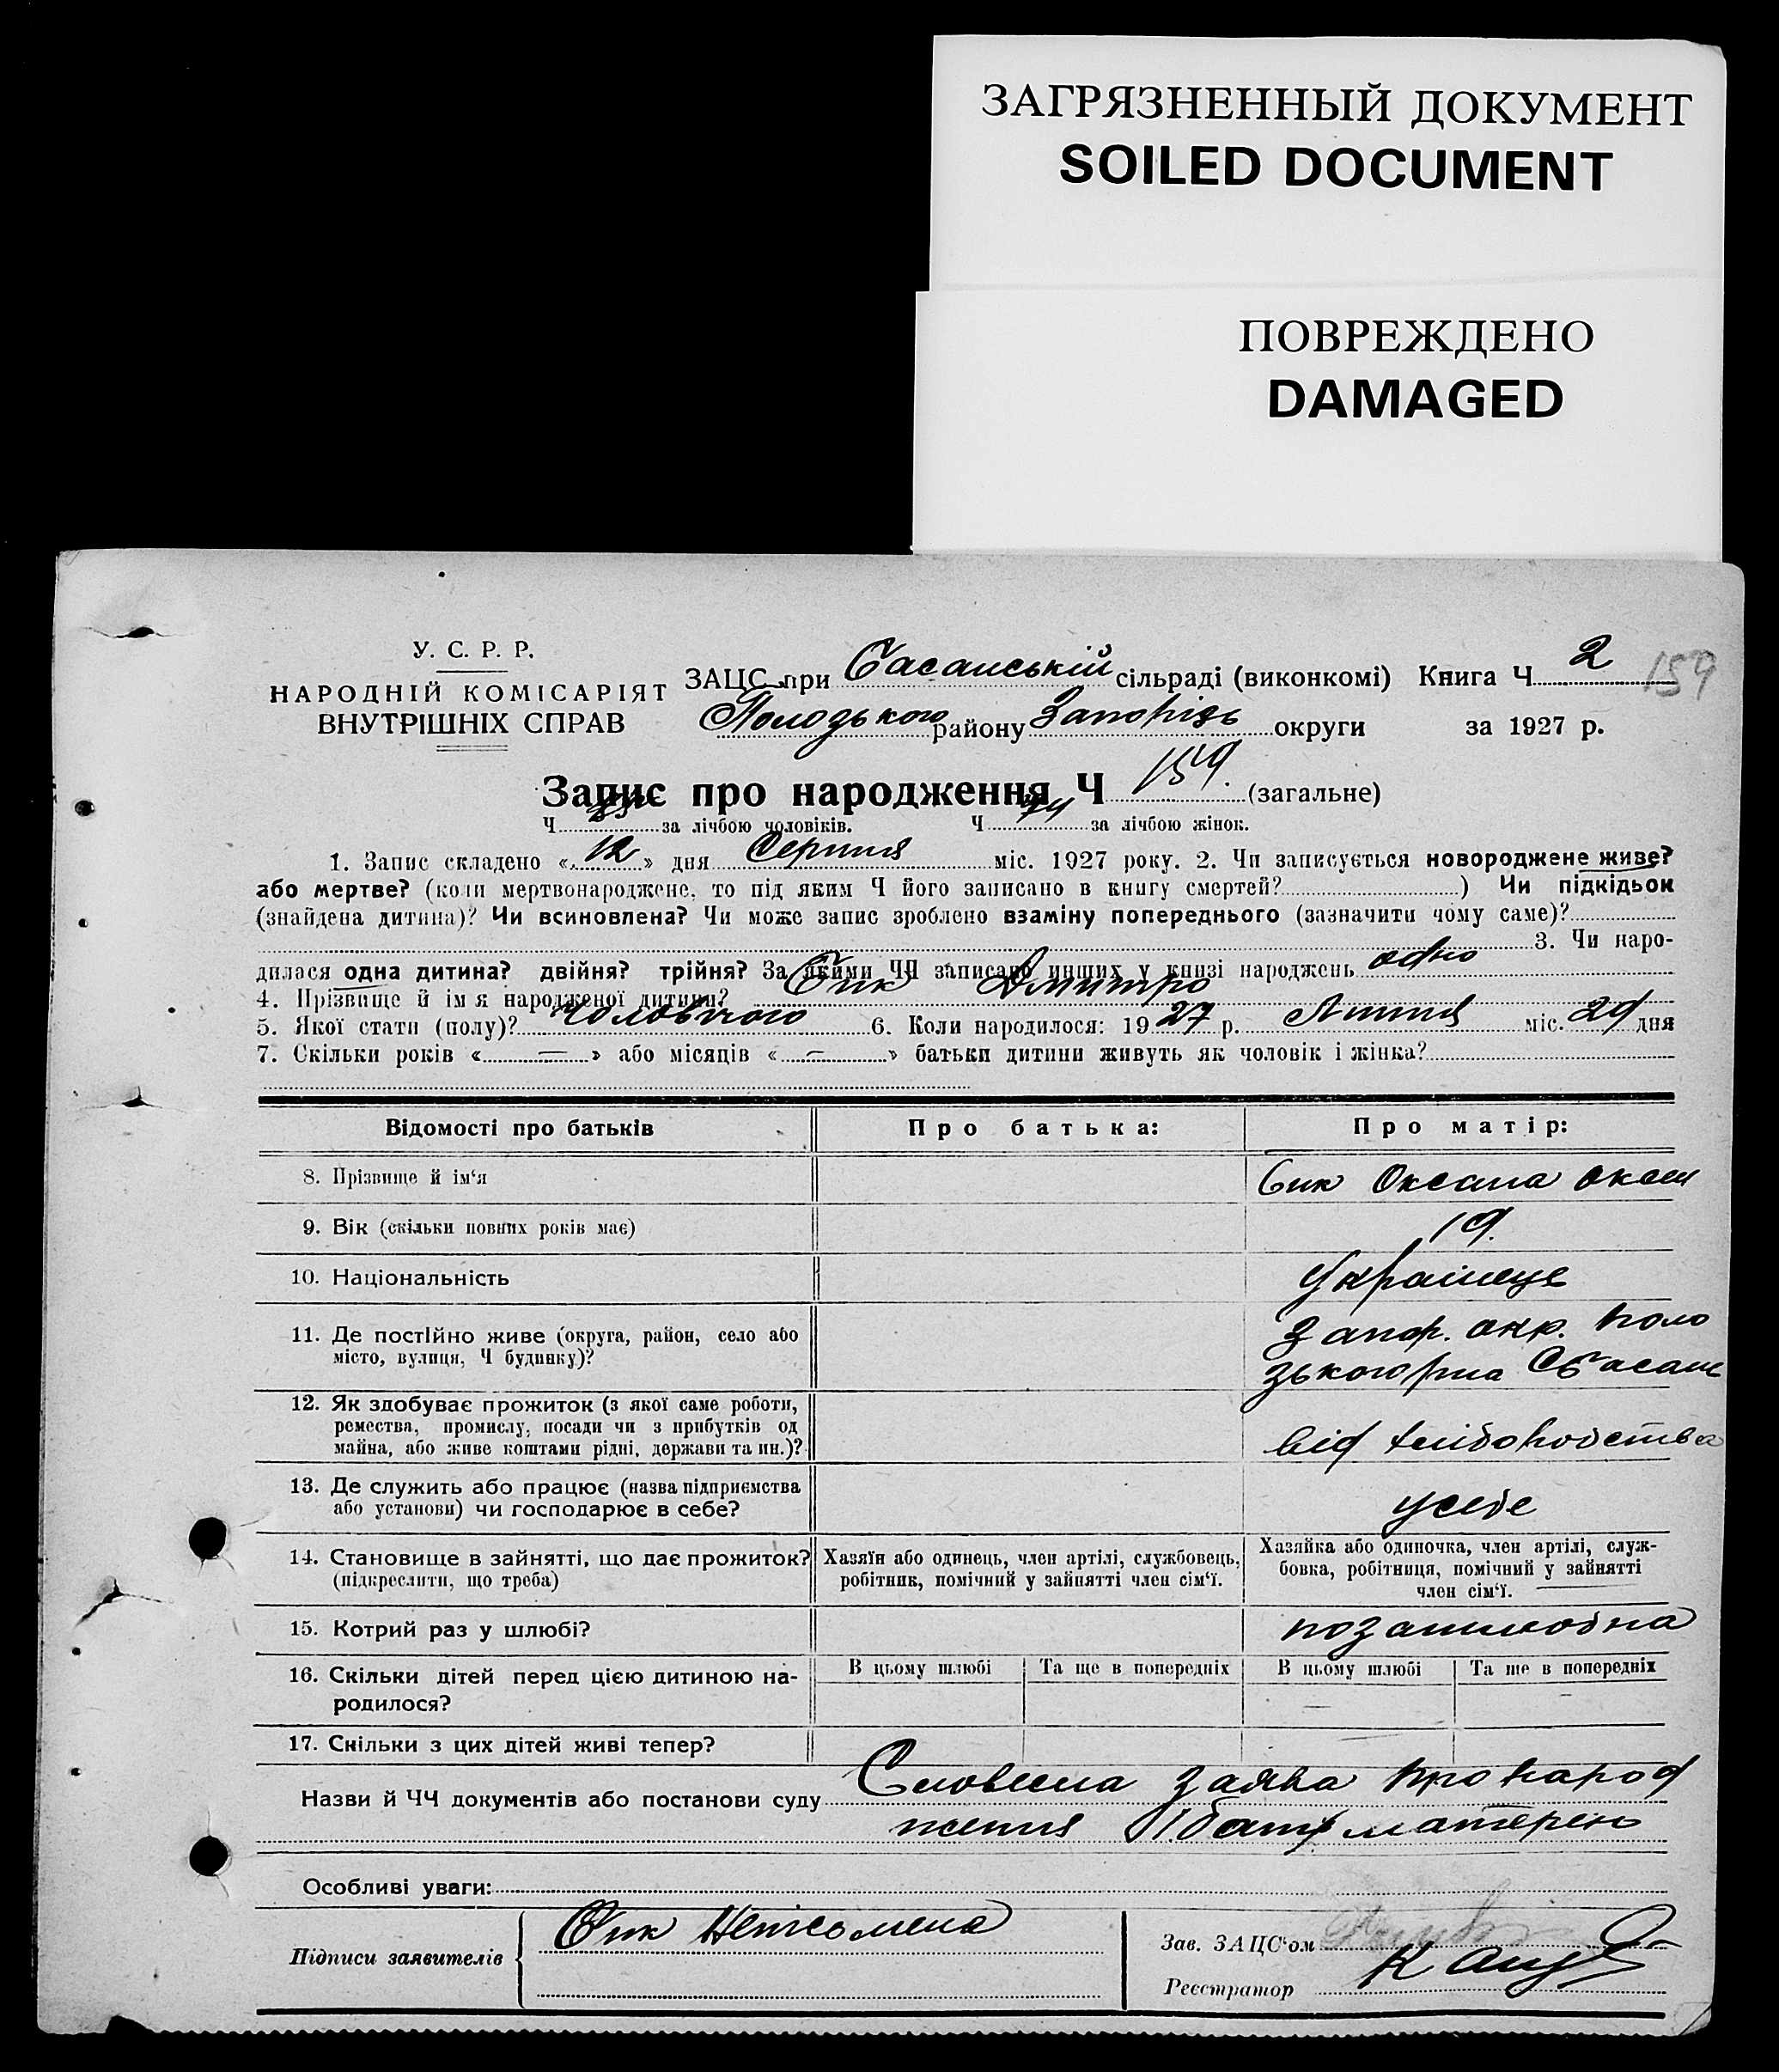 ЗАГРЯЗНЕННЫЙ ДОКУМЕНТ
SOILED DOCUMENT
ПОВРЕЖДЕНО
DAMAGED
У. С. Р. Р.
НАРОДНІЙ КОМІСАРІЯТ
ВНУТРІШНІХ СПРАВ
ЗАЦС при Басанській сільраді (виконкомі) Книга Ч 2 159
Полозького району Запорізь округи за 1927 р.
Запис про народження Ч 159. (загальне)
Ч 85 за лічбою чоловіків. Ч 74 за лічбою жінок.
1. Запис складено «12» дня Серпня міс. 1927 року. 2. Чи записується новороджене живе?
або мертве? (коли мертвонароджене, то під яким Ч його записано в книгу смертей? ) Чи підкідьок
(знайдена дитина)? Чи всиновлена? Чи може запис зроблено взаміну попереднього (зазначити чому саме)?
3. Чи наро-
дилася одна дитина? двійня? трійня? За якими ЧЧ записано инших у книзі народжень одно
4. Прізвище й ім я народженої дитини? Бик Дмитро
5. Якої стати (полу)? Чоловічого 6. Коли народилося: 1927 р. Липня міс. 29 дня
7. Скільки років « — » або місяців « — » батьки дитини живуть як чоловік і жінка?
Відомості про батьків Про батька: Про матір:
8. Прізвище й ім‘я Бик Оксана
9. Вік (скільки повних років має) 19.
10. Національність Українець
11. Де постійно живе (округа, район, село або Запор. окр. Поло
місто, вулиця, Ч будинку)? зького р-на С Басань
12. Як здобуває прожиток (з якої саме роботи,
ремества, промислу, посади чи з прибутків од
майна, або живе коштами рідні, держави та ин.)? від хліборобства
13. Де служить або працює (назва підприємства
або установи) чи господарює в себе? у себе
14. Становище в зайнятті, що дає прожиток? Хазяїн або одинець, член артілі, службовець, Хазяйка або одиночка, член артілі, служ-
(підкреслити, що треба) робітник, помічний у зайнятті член сім‘ї. бовка, робітниця, помічний у зайнятті
член сім‘ї.
15. Котрий раз у шлюбі? позашлюбна
16. Скільки дітей перед цією дитиною на- В цьому шлюбі Та ще в попередніх В цьому шлюбі Та ще в попередніх
родилося? — —
17. Скільки з цих дітей живі тепер?
Назви й ЧЧ документів або постанови суду Словесна заява про народ
ження матерею
Особливі уваги:
Підписи заявителів Бик Неписьмена
Зав. ЗАЦС‘ом
Реєстратор